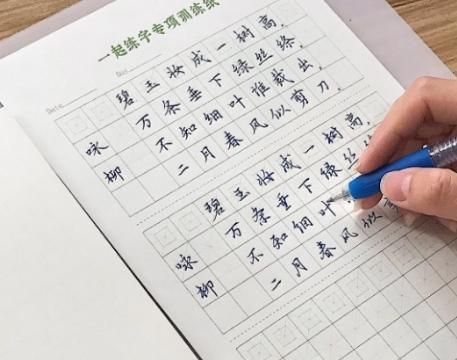 一起练字专项训练纸
Date:
碧玉妆成一树高，
万条垂下绿丝绦．
咏 不知细叶谁裁出，
柳 二月春风似剪刀．
碧玉妆成一树高，
万条垂下绿丝
咏 不知细叶
柳 二月春风似